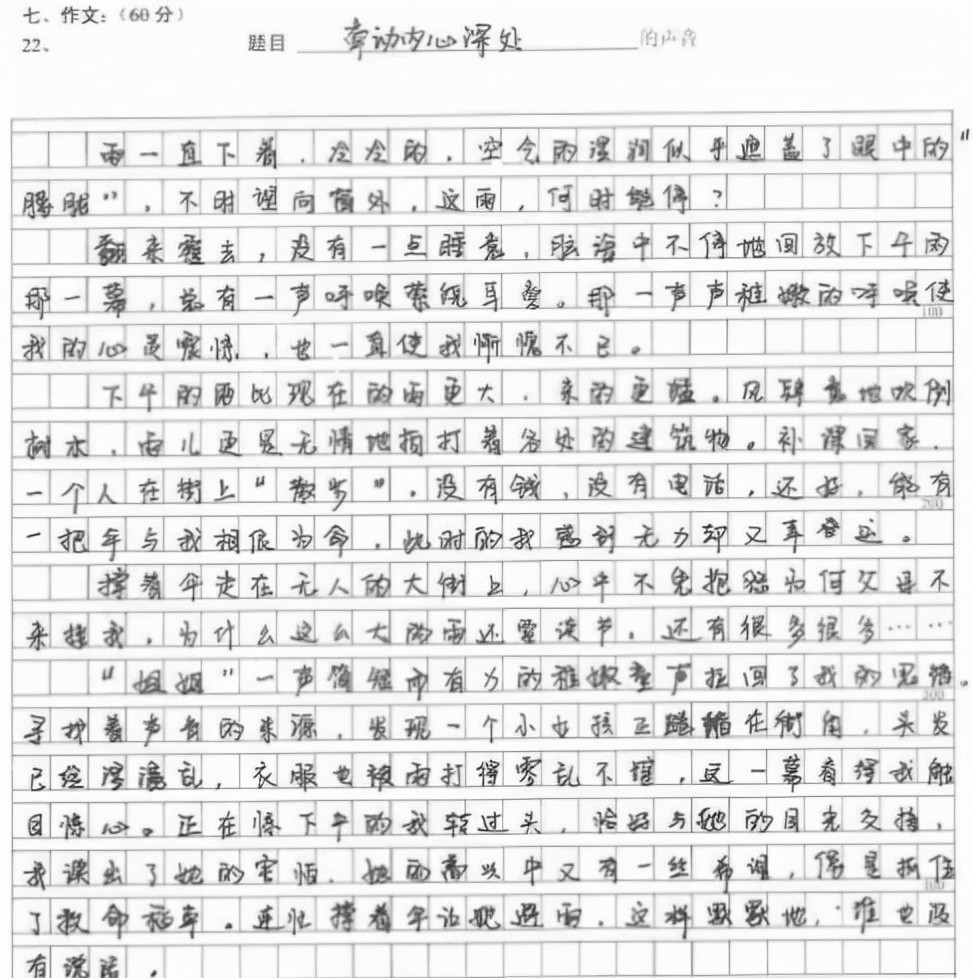 七、作文：（60分）
22、 题目 牵动内心深处 的声音
雨一直下着，冷冷的，空气的湿润似乎遮盖了眼中的"
朦胧"，不时望向窗外，这雨，何时能停？
翻来覆去，没有一点睡意，脑海中不停地回放下午的
那一幕，总有一声呼唤萦绕耳旁。那一声声稚嫩的呼唤使
我的心灵震惊，也一直使我惭愧不已。
下午的雨比现在的雨更大，来的更猛。风肆意地吹倒
树木，雨儿更是无情地拍打着各处的建筑物。补课回家，
一个人在街上"散步"。没有钱，没有电话，还好，能有
一把伞与我相依为命，此时的我感到无力却又幸運。
撑着伞走在无人的大街上，心中不免抱怨为何父母不
来接我，为什么这么大的雨还要读书，还有很多很多……
"姐姐"一声简短而有力的稚嫩童声拉回了我的思绪。
寻找着声音的来源，发现一个小女孩正蹲在街角，头发
已经凌乱，衣服也被雨打得零乱不堪，这一幕看得我触
目惊心。正在停下伞的我转过头，恰好与她的目光交接，
我读出了她的害怕，她的高兴中又有一丝希望，像是抓住
了救命稻草。连忙撑着伞让她避雨，这样默默地，谁也没
有说话，
100
200
300
400